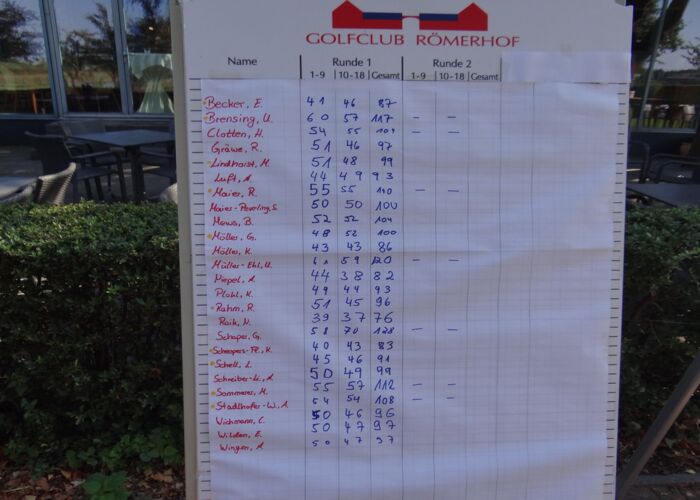 GOLFCLUB RÖMERHOF
Name Runde 1 Runde 2
1-9 10-18 Gesamt 1-9 10-18 Gesamt
Becker, E. 41 46 87
Brensing, U. 60 57 117 - -
Clotten, H. 54 55 109 - -
Gräwe, R. 51 46 97
Lindhorst, M. 51 48 99
Luft, A. 44 49 93
Maier, R. 55 55 110 - -
Maier-Peveling, S. 50 50 100
Mews, B. 52 52 104
Möller, G. 48 52 100
Möller, K. 43 43 86
Müller-Ehl, U. 61 59 120 - -
Miepel, A. 44 38 82
Plohl, K. 49 44 93
Rahm, R. 51 45 96
Raik, N. 39 37 76
Schaper, G. 58 70 128 - -
Scheepers-Pf., K. 40 43 83
Schell, L. 45 46 91
Schreiber-Li., A. 50 49 99
Sommers, M. 55 57 112 - -
Stadlhofer-W., A. 54 54 108 - -
Wichmann, C. 50 46 96
Wilden, E. 50 47 97
Wingen, A. 50 47 97